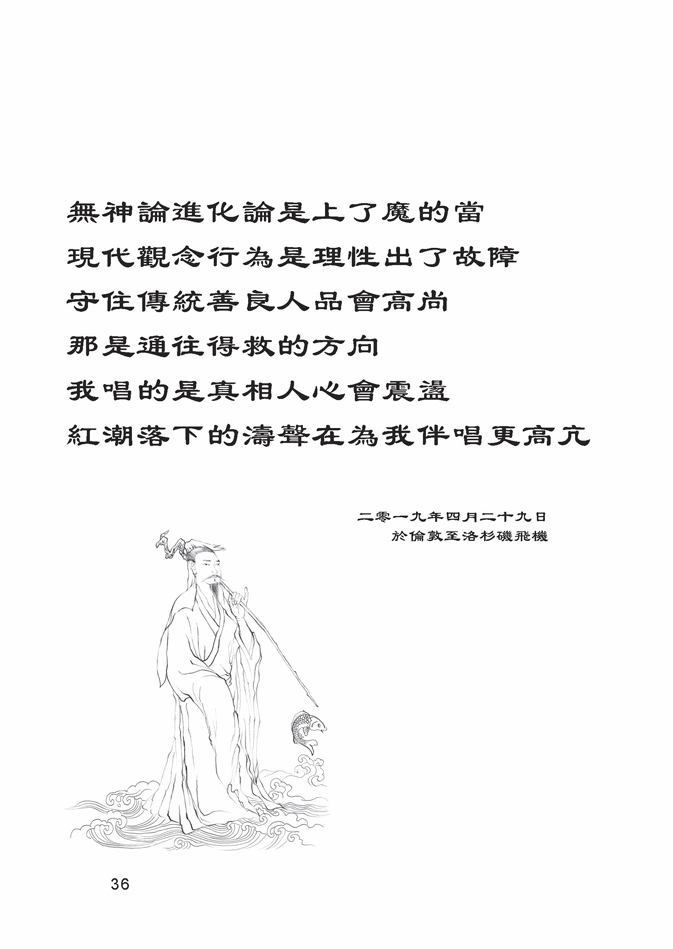 無神論進化論是上了魔的當
現代觀念行為是理性出了故障
守住傳統善良人品會高尚
那是通往得救的方向
我唱的是真相人心會震盪
紅潮落下的濤聲在為我伴唱更高亢
二零一九年四月二十九日
於倫敦至洛杉磯飛機
36